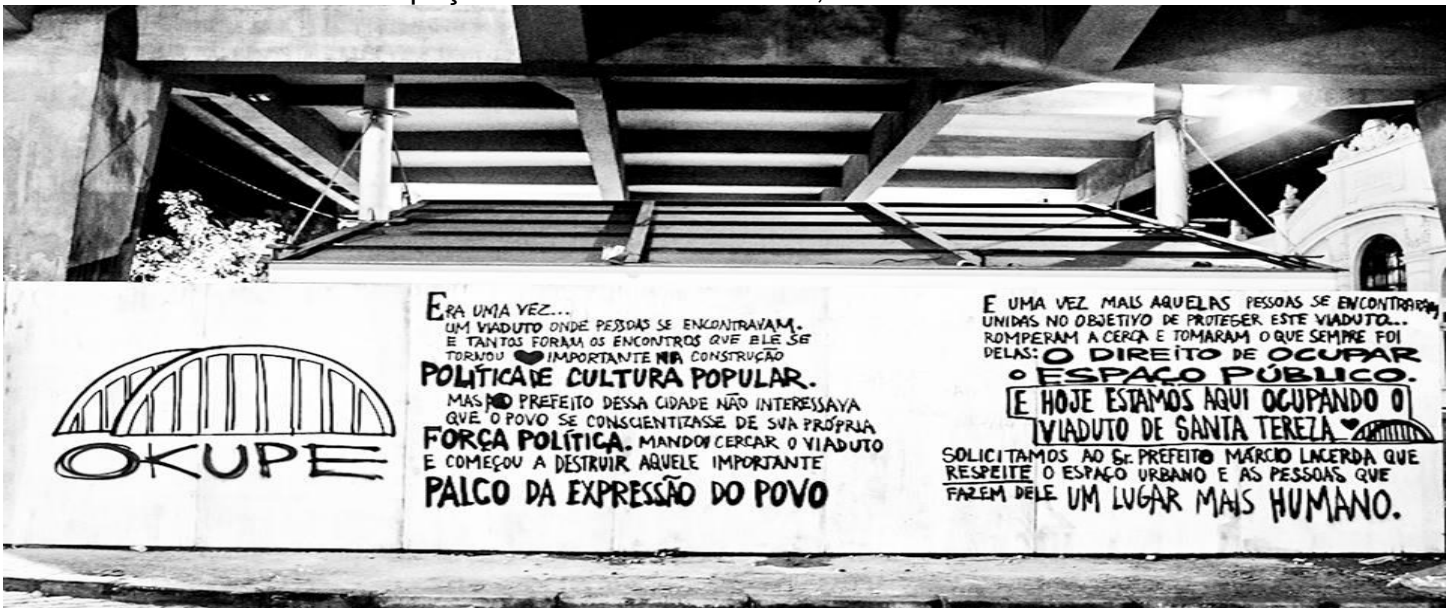 OKUPE
ERA UMA VEZ...
UM VIADUTO ONDE PESSOAS SE ENCONTRAVAM.
E TANTOS FORAM OS ENCONTROS QUE ELE SE
TORNOU IMPORTANTE NA CONSTRUÇÃO
POLÍTICA DE CULTURA POPULAR.
MAS AO PREFEITO DESSA CIDADE NÃO INTERESSAVA
QUE O POVO SE CONSCIENTIZASSE DE SUA PRÓPRIA
FORÇA POLÍTICA. MANDOU CERCAR O VIADUTO
E COMEÇOU A DESTRUIR AQUELE IMPORTANTE
PALCO DA EXPRESSÃO DO POVO
E UMA VEZ MAIS AQUELAS PESSOAS SE ENCONTRARAM
UNIDAS NO OBJETIVO DE PROTEGER ESTE VIADUTO...
ROMPERAM A CERCA E TOMARAM O QUE SEMPRE FOI
DELAS: O DIREITO DE OCUPAR
O ESPAÇO PÚBLICO.
E HOJE ESTAMOS AQUI OCUPANDO O
VIADUTO DE SANTA TEREZA
SOLICITAMOS AO Sr. PREFEITO MÁRCIO LACERDA QUE
RESPEITE O ESPAÇO URBANO E AS PESSOAS QUE
FAZEM DELE UM LUGAR MAIS HUMANO.